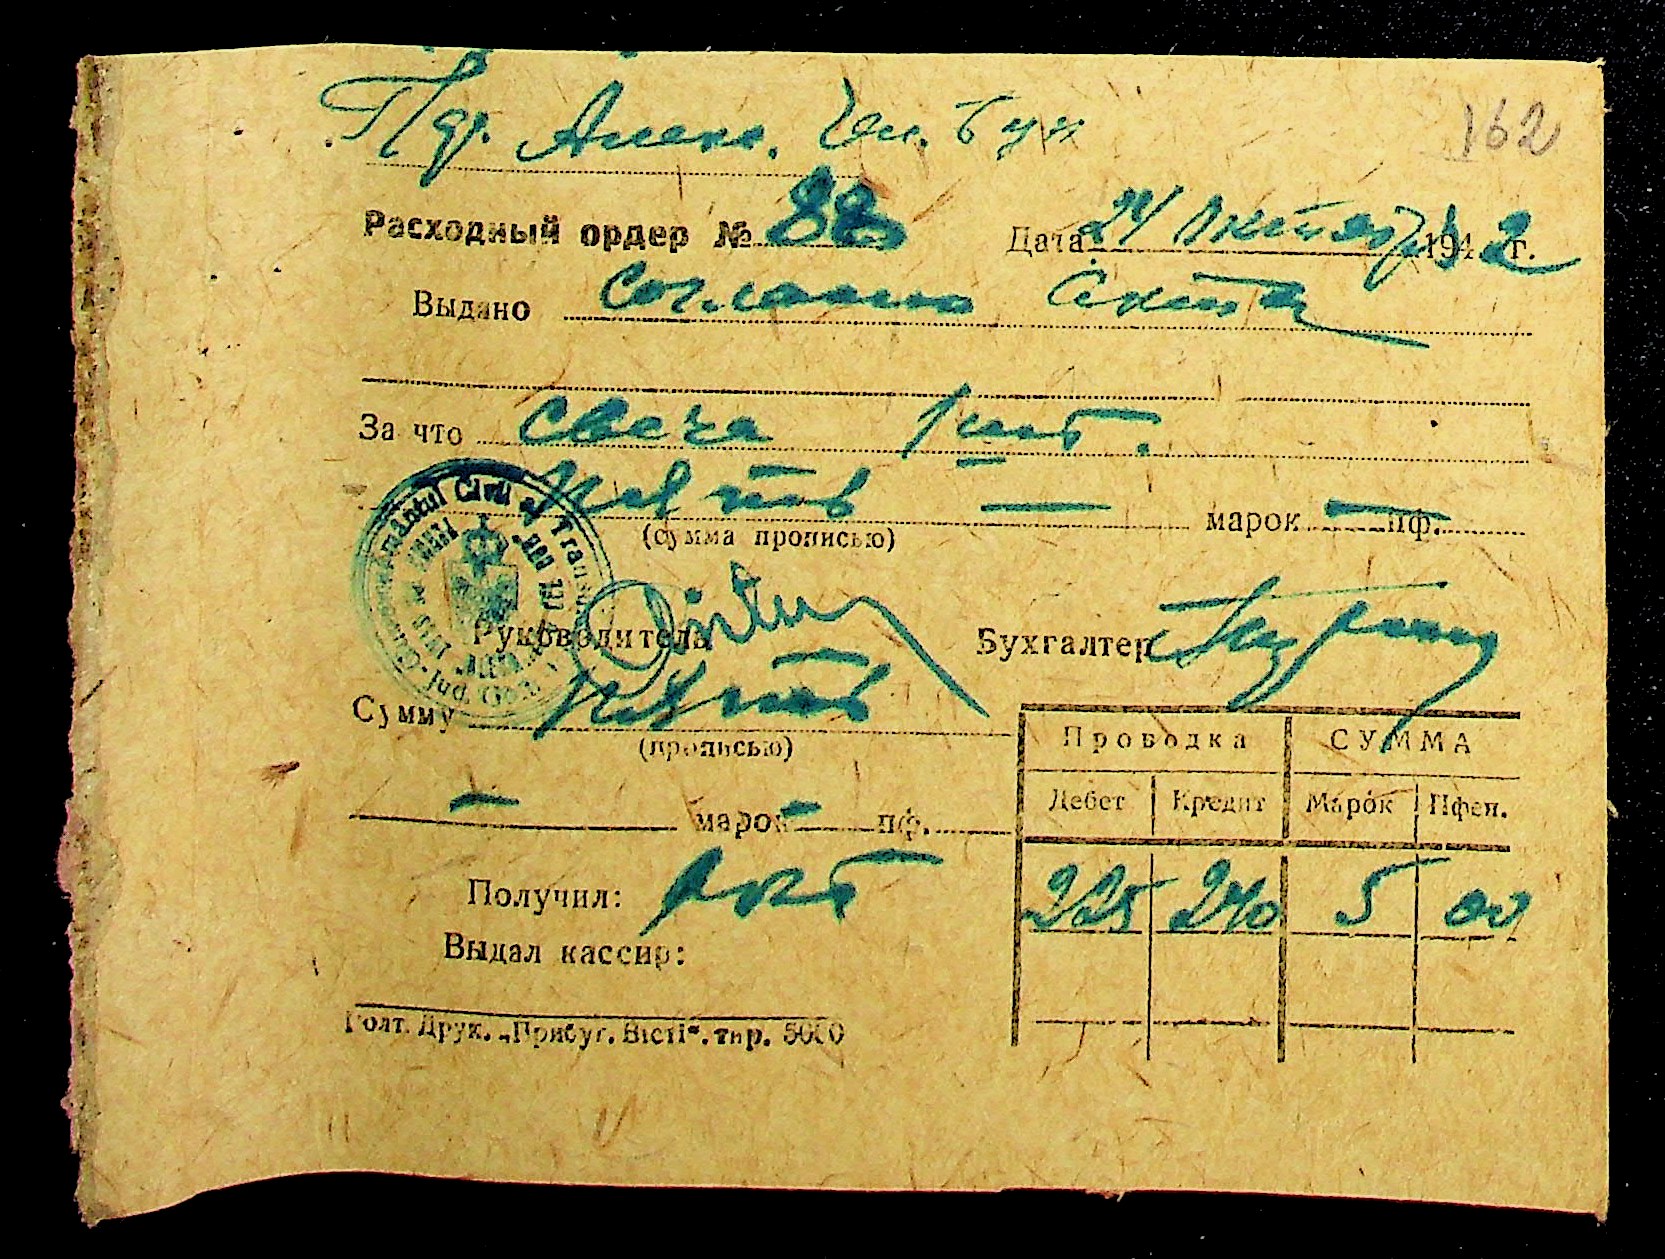 Пдр. Алекс.
162
Расходный ордер № 88 Дата 24 Октября 1942 г.
Выдано Согласно Акта
За что свеча 1 шт.
Пять — марок — пф.
(сумма прописью)
Guvernământul Civil al Trans
Jud. Golta
Руководитель Бухгалтер
Сумму Пять
(прописью)
— марок — пф.
Проводка СУММА
Дебет Кредит Марок Пфен.
225 240 5 00
Получил: Акт
Выдал кассир:
Голт. Друк. „Прибуг. Вісті“. тир. 5000